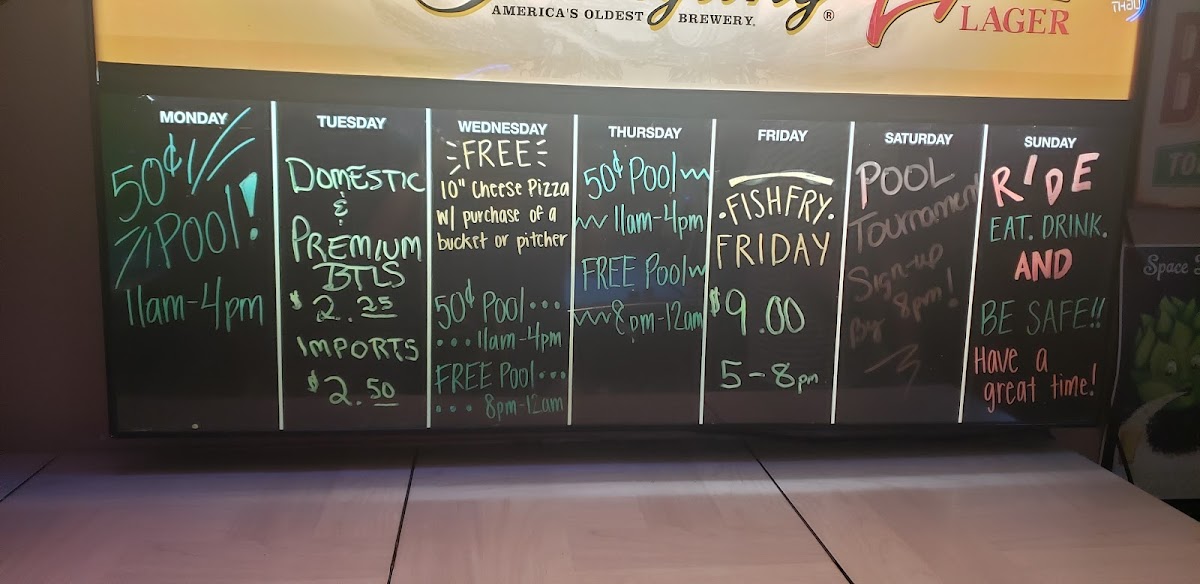 AMERICA'S OLDEST BREWERY.®
LAGER
LIGHT
MONDAY
50¢
POOL!
11am-4pm
TUESDAY
DOMESTIC
&
PREMIUM
BTLS
$2.25
IMPORTS
$2.50
WEDNESDAY
FREE
10" Cheese Pizza
w/ purchase of a
bucket or pitcher
50¢ Pool...
...11am-4pm
FREE Pool...
... 8pm-12am
THURSDAY
50¢ Pool
11am-4pm
FREE Pool
8pm-12am
FRIDAY
•FISH FRY•
FRIDAY
$9.00
5-8pm
SATURDAY
POOL
Tournament
Sign-up
By 8pm!
SUNDAY
RIDE
EAT. DRINK.
AND
BE SAFE!!
Have a
great time!
Space